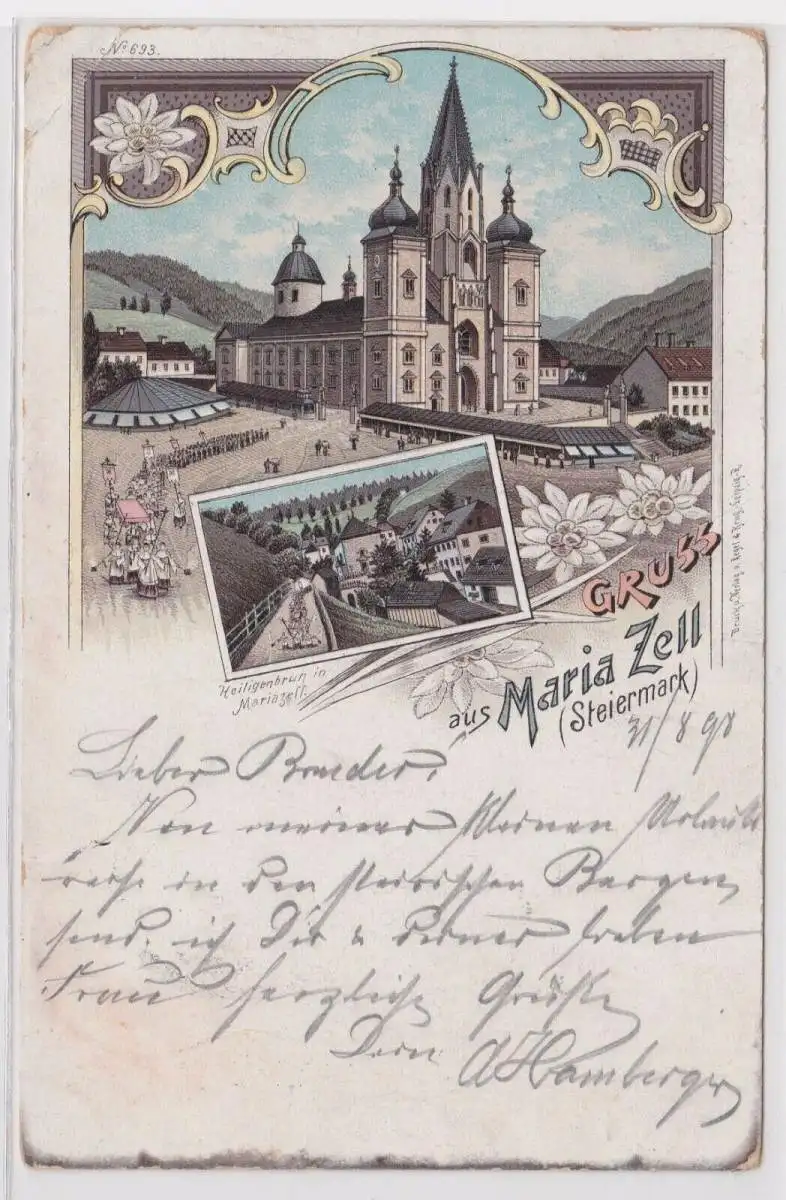 No 693.
Heiligenbrun in
Mariazell.
GRUSS
aus Maria Zell
(Steiermark)
Druck u. Verlag v. Regel & Krug, Leipzig-R.
31/8 98
Lieber Bruder!
Von meiner kleinen Urlaubs
reise in den steirischen Bergen
send ich Dir & deiner lieben
Frau herzliche Grüße
Dein
A Hamberger